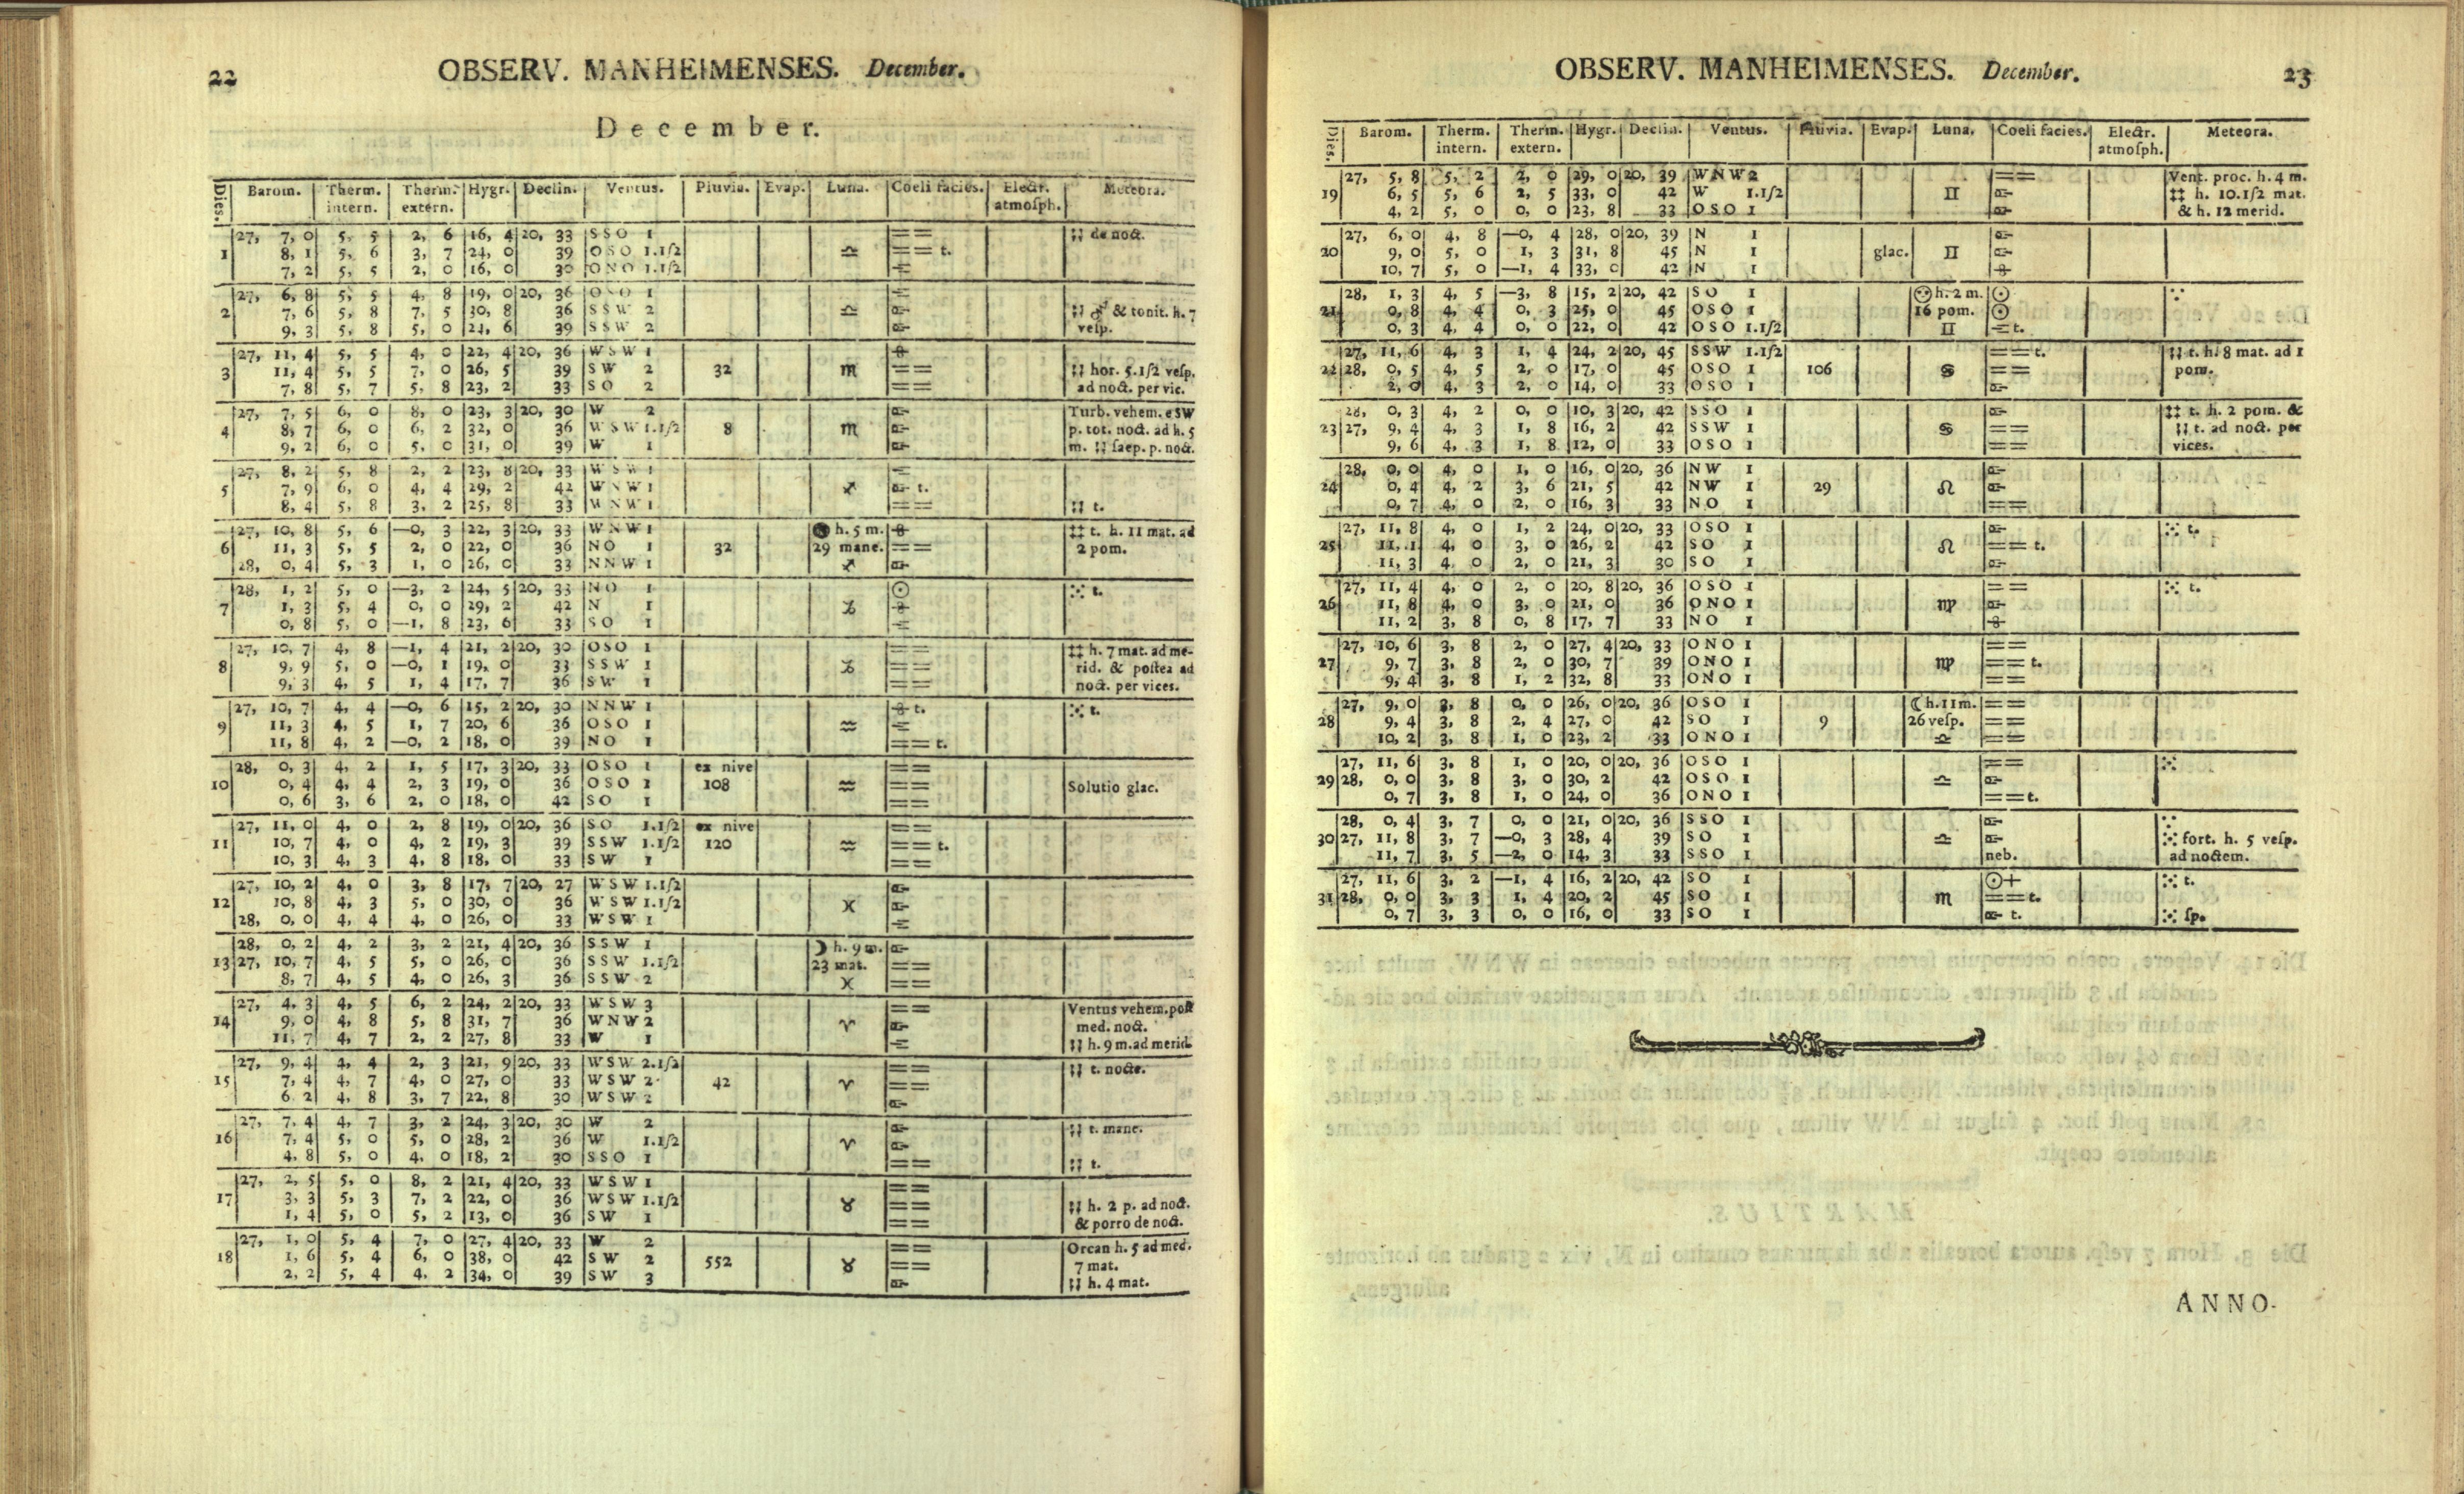 22
OBSERV. MANHEIMENSES. December.
December.
Dies. Barom. Therm. intern. Therm. extern. Hygr. Declin. Ventus. Pluvia. Evap. Luna. Coeli facies. Electr. atmosph. Meteora.
27, 7, 0 5, 5 2, 6 16, 4 20, 33 SSO 1 == de noct.
1 8, 1 5, 6 3, 7 24, 0 39 OSO 1.1/2 ♎ == t.
7, 2 5, 5 2, 0 16, 0 30 ONO 1.1/2
27, 6, 8 5, 5 4, 8 19, 0 20, 36 OSO 1
2 7, 6 5, 8 7, 5 30, 8 36 SSW 2 ♎ & tonit. h. 7
9, 3 5, 8 5, 0 24, 6 39 SSW 2 vesp.
27, 11, 4 5, 5 4, 0 22, 4 20, 36 WSW 1
3 11, 4 5, 5 7, 0 26, 5 39 SW 2 32 ♏ == hor. 5.1/2 vesp.
7, 8 5, 7 5, 8 23, 2 33 SO 2 == ad noct. per vic.
27, 7, 5 6, 0 8, 0 23, 3 20, 30 W 2 Turb. vehem. e SW
4 8, 7 6, 0 6, 2 32, 0 36 WSW 1.1/2 8 ♏ p. tot. noct. ad h. 5
9, 2 6, 0 5, 0 31, 0 39 W 1 m. saep. p. noct.
27, 8, 2 5, 8 2, 2 23, 8 20, 33 WSW 1
5 7, 9 6, 0 4, 4 29, 2 42 WNW 1 ♐ t.
8, 4 5, 8 3, 2 25, 8 33 WNW 1 == t.
27, 10, 8 5, 6 —0, 3 22, 3 20, 33 WNW 1 h. 5 m. t. h. 11 mat. ad
6 11, 3 5, 5 2, 0 22, 0 36 NO 1 32 29 mane. == 2 pom.
28, 0, 4 5, 3 1, 0 26, 0 33 NNW 1 ♐
28, 1, 2 5, 0 —3, 2 24, 5 20, 33 NO 1 ☉ t.
7 1, 3 5, 4 0, 0 29, 2 42 N 1 ♑
0, 8 5, 0 —1, 8 23, 6 33 SO 1
27, 10, 7 4, 8 —1, 4 21, 2 20, 30 OSO 1 == h. 7 mat. ad me-
8 9, 9 5, 0 —0, 1 19, 0 33 SSW 1 ♑ == rid. & postea ad
9, 3 4, 5 1, 4 17, 7 36 SW 1 == noct. per vices.
27, 10, 7 4, 4 —0, 6 15, 2 20, 30 NNW 1 t. t.
9 11, 3 4, 5 1, 7 20, 6 36 OSO 1 ♒
11, 8 4, 2 —0, 2 18, 0 39 NO 1 == t.
28, 0, 3 4, 2 1, 5 17, 3 20, 33 OSO 1 ex nive ==
10 0, 4 4, 4 2, 3 19, 0 36 OSO 1 108 ♒ == Solutio glac.
0, 6 3, 6 2, 0 18, 0 42 SO 1 ==
27, 11, 0 4, 0 2, 8 19, 0 20, 36 SO 1.1/2 ex nive ==
11 10, 7 4, 0 4, 2 19, 3 39 SSW 1.1/2 120 ♒ == t.
10, 3 4, 3 4, 8 18, 0 33 SW 1 ==
27, 10, 2 4, 0 3, 8 17, 7 20, 27 WSW 1.1/2
12 10, 8 4, 3 5, 0 30, 0 36 WSW 1.1/2 ♓
28, 0, 0 4, 4 4, 0 26, 0 33 WSW 1
28, 0, 2 4, 2 3, 2 21, 4 20, 36 SSW 1 ☽ h. 9 m.
13 27, 10, 7 4, 5 5, 0 26, 0 36 SSW 1.1/2 23 mat. ==
8, 7 4, 5 4, 0 26, 3 36 SSW 2 ♓ ==
27, 4, 3 4, 5 6, 2 24, 2 20, 33 WSW 3 == Ventus vehem. post
14 9, 0 4, 8 5, 8 31, 7 36 WNW 2 ♈ med. noct.
11, 7 4, 7 2, 2 27, 8 33 W 1 h. 9 m. ad merid.
27, 9, 4 4, 4 2, 3 21, 9 20, 33 WSW 2.1/2 == t. nocte.
15 7, 4 4, 7 4, 0 27, 0 33 WSW 2 42 ♈ ==
6 2 4, 8 3, 7 22, 8 30 WSW 2
27, 7, 4 4, 7 3, 2 24, 3 20, 30 W 2 t. mane.
16 7, 4 5, 0 5, 0 28, 2 36 W 1.1/2 ♈
4, 8 5, 0 4, 0 18, 2 30 SSO 1 == t.
27, 2, 5 5, 0 8, 2 21, 4 20, 33 WSW 1 ==
17 3, 3 5, 3 7, 2 22, 0 36 WSW 1.1/2 ♉ == h. 2 p. ad noct.
1, 4 5, 0 5, 2 13, 0 36 SW 1 == & porro de noct.
27, 1, 0 5, 4 7, 0 27, 4 20, 33 W 2 == Orcan h. 5 ad med.
18 1, 6 5, 4 6, 0 38, 0 42 SW 2 552 ♉ == 7 mat.
2, 2 5, 4 4, 2 34, 0 39 SW 3 h. 4 mat.
OBSERV. MANHEIMENSES. December.
23
Dies. Barom. Therm. intern. Therm. extern. Hygr. Declin. Ventus. Pluvia. Evap. Luna. Coeli facies. Electr. atmosph. Meteora.
27, 5, 8 5, 2 2, 0 29, 0 20, 39 WNW 2 == Vent. proc. h. 4 m.
19 6, 5 5, 6 2, 5 33, 0 42 W 1.1/2 ♊ h. 10.1/2 mat.
4, 2 5, 0 0, 0 23, 8 33 OSO 1 & h. 12 merid.
27, 6, 0 4, 8 —0, 4 28, 0 20, 39 N 1
20 9, 0 5, 0 1, 3 31, 8 45 N 1 glac. ♊
10, 7 5, 0 —1, 4 33, 0 42 N 1
28, 1, 3 4, 5 —3, 8 15, 2 20, 42 SO 1 h. 2 m. ☉
21 0, 8 4, 4 0, 3 25, 0 45 OSO 1 16 pom. ☉
0, 3 4, 4 0, 0 22, 0 42 OSO 1.1/2 ♊ t.
27, 11, 6 4, 3 1, 4 24, 2 20, 45 SSW 1.1/2 == t. t. h. 8 mat. ad 1
22 28, 0, 5 4, 5 2, 0 17, 0 45 OSO 1 106 ♋ == pom.
2, 0 4, 3 2, 0 14, 0 33 OSO 1
28, 0, 3 4, 2 0, 0 10, 3 20, 42 SSO 1 t. h. 2 pom. &
23 27, 9, 4 4, 3 1, 8 16, 2 42 SSW 1 ♋ == t. ad noct. per
9, 6 4, 3 1, 8 12, 0 33 OSO 1 == vices.
28, 0, 0 4, 0 1, 0 16, 0 20, 36 NW 1
24 0, 4 4, 2 3, 6 21, 5 42 NW 1 29 ♌
0, 7 4, 0 2, 0 16, 3 33 NO 1 ==
27, 11, 8 4, 0 1, 2 24, 0 20, 33 OSO 1 t.
25 11, 1 4, 0 3, 0 26, 2 42 SO 1 ♌ == t.
11, 3 4, 0 2, 0 21, 3 30 SO 1
27, 11, 4 4, 0 2, 0 20, 8 20, 36 OSO 1 == t.
26 11, 8 4, 0 3, 0 21, 0 36 ONO 1 ♍
11, 2 3, 8 0, 8 17, 7 33 NO 1
27, 10, 6 3, 8 2, 0 27, 4 20, 33 ONO 1 ==
27 9, 7 3, 8 2, 0 30, 7 39 ONO 1 ♍ == t.
9, 4 3, 8 1, 2 32, 8 33 ONO 1 ==
27, 9, 0 3, 8 0, 0 26, 0 20, 36 OSO 1 ☾ h. 11 m. ==
28 9, 4 3, 8 2, 4 27, 0 42 SO 1 9 26 vesp. ==
10, 2 3, 8 1, 0 23, 2 33 ONO 1 ♎ ==
27, 11, 6 3, 8 1, 0 20, 0 20, 36 OSO 1 ==
29 28, 0, 0 3, 8 3, 0 30, 2 42 OSO 1 ♎
0, 7 3, 8 1, 0 24, 0 36 ONO 1 == t.
28, 0, 4 3, 7 0, 0 21, 0 20, 36 SSO 1
30 27, 11, 8 3, 7 —0, 3 28, 4 39 SO 1 ♎ fort. h. 5 vesp.
11, 7 3, 5 —2, 0 14, 3 33 SSO 1 neb. ad noctem.
27, 11, 6 3, 2 —1, 4 16, 2 20, 42 SO 1 ☉+ t.
31 28, 0, 0 3, 3 1, 4 20, 2 45 SO 1 ♏ == t.
0, 7 3, 3 0, 0 16, 0 33 SO 1 t. sp.
ANNO-